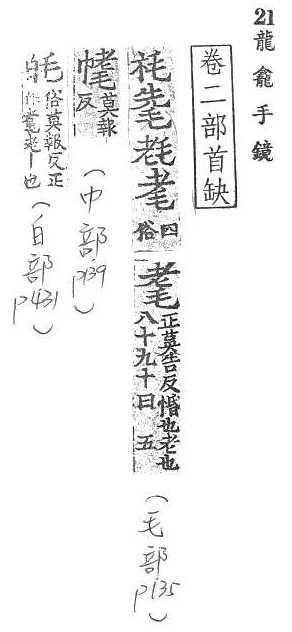 21 龍龕手鏡
卷二部首缺
四俗
耄 正莫告反惛也老也
八十九十曰 五
(毛部 p135)
莫報
反
(巾部 p139)
俗莫報反正
作耄老丨也
(白部 p431)